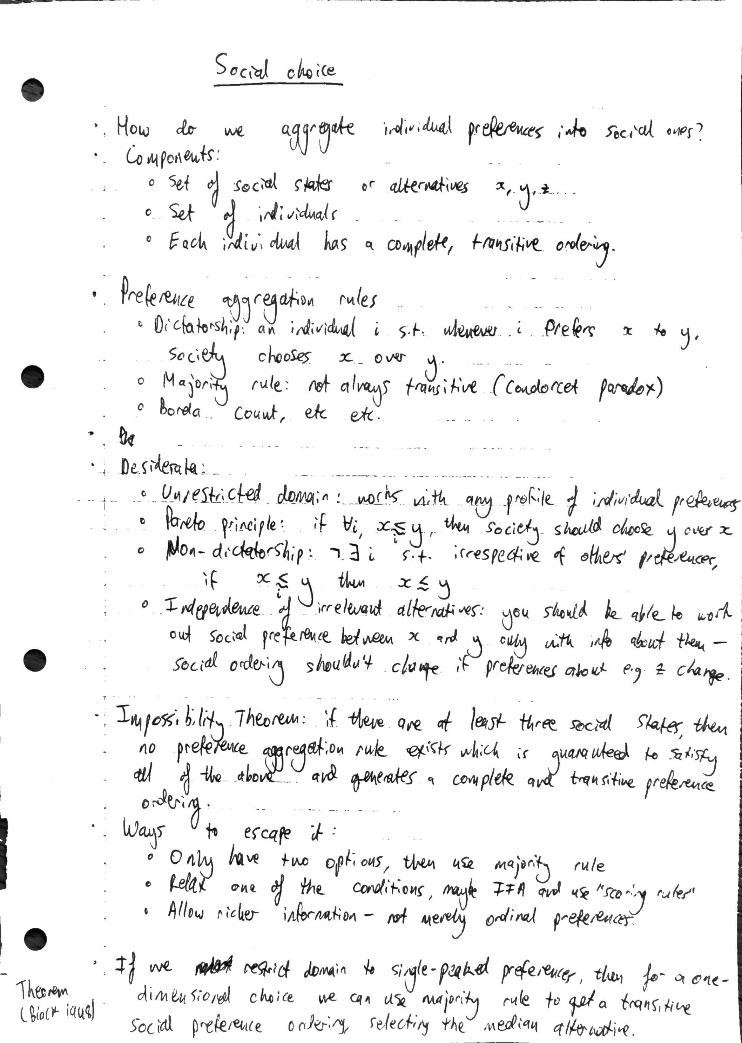 Social choice
· How do we aggregate individual preferences into social ones?
· Components:
∘ Set of social states or alternatives x, y, z
∘ Set of individuals
∘ Each individual has a complete, transitive ordering.
· Preference aggregation rules
∘ Dictatorship: an individual i s.t. whenever i prefers x to y,
society chooses x over y.
∘ Majority rule: not always transitive (Condorcet paradox)
∘ Borda Count, etc etc.
·
· Desiderata:
∘ Unrestricted domain: works with any profile of individual preferences
∘ Pareto principle: if ∀i, x ≤ᵢ y, then society should choose y over x
∘ Non-dictatorship: ¬∃i s.t. irrespective of others' preferences,
if x ≤ᵢ y then x ≤ y
∘ Independence of irrelevant alternatives: you should be able to work
out social preference between x and y only with info about them –
social ordering shouldn't change if preferences about e.g. z change.
· Impossibility Theorem: if there are at least three social states, then
no preference aggregation rule exists which is guaranteed to satisfy
all of the above and generates a complete and transitive preference
ordering.
· Ways to escape it:
∘ Only have two options, then use majority rule
∘ Relax one of the conditions, maybe IIA and use "scoring rules"
· Allow richer information – not merely ordinal preferences.
· If we restrict domain to single-peaked preferences, then for a one-
dimensional choice we can use majority rule to get a transitive
social preference ordering, selecting the median alternative.
Theorem
(Black 1948)